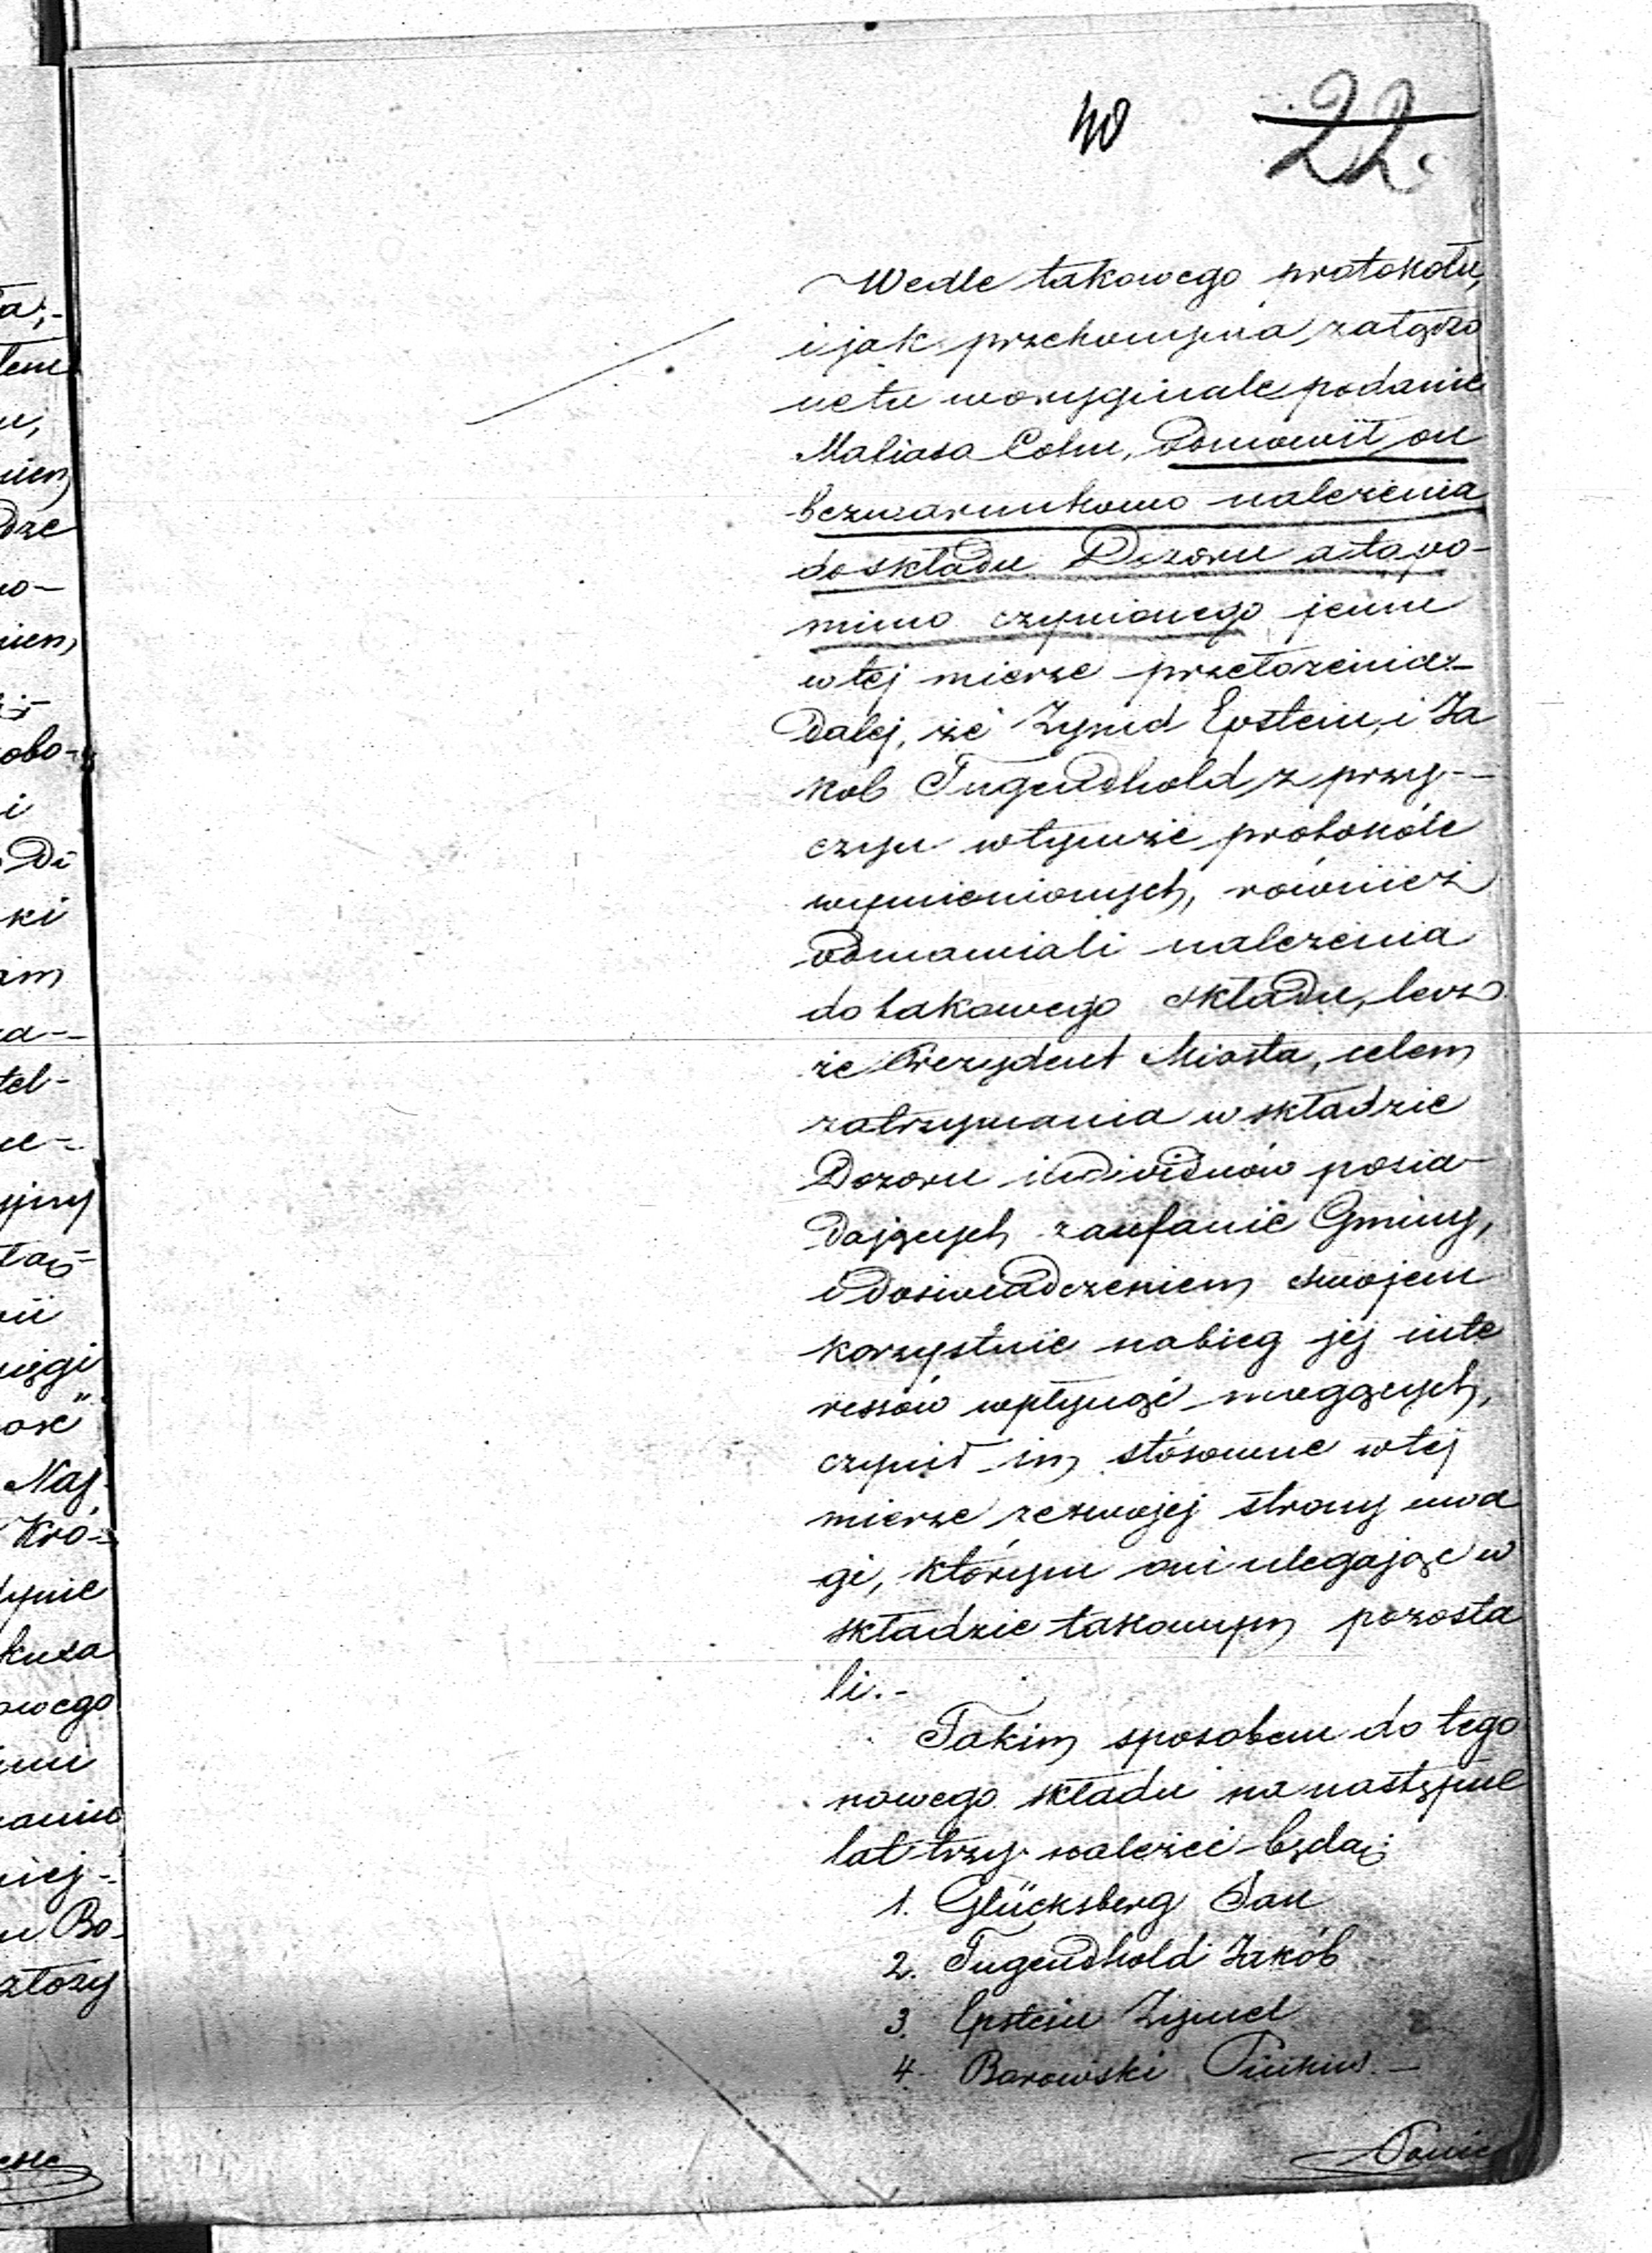 40 22.
Wedle takowego protokołu,
i jak przekonywa załączo
ne tu w oryginale podanie
Matiasa Cohn, odmówił on
bezwarunkowo należenia
do składu Dozoru a to po-
mimo czynionego jemu
w tej mierze przełożenia
Dalej, że Zymel Epstein, i Ja
kob Tugendhold z przy-
czyn w tymże protokóle
wymienionych, również
odmawiali należenia
do takowego składu, lecz
że Prezydent Miasta, celem
zatrzymania w składzie
Dozoru individuów posia-
dających zaufanie Gminy,
i doświadczeniem swojem
korzystnie na bieg jej inte
ressów wpłynąć mogących,
czynił im stósowne w tej
mierze ze swojej strony uwa
gi, którym oni ulegając w
składzie takowym pozosta
li.-
Takim sposobem do tego
nowego składu na następne
lat trzy należeć będą:
1. Glücksberg Jan
2. Tugendhold Jakób
3. Epstein Zymel
4. Barowski Pinkus -
ła;-
tem
u,
niem
dze
wo-
niem
obo-
i
Di
ki
am
za-
tel-
ne-
yjny
łać-
nii
sięgi
ość"
Naj-
Kró-
dynie
kusa
owego
nmi
niej-
u Bo-
złozy